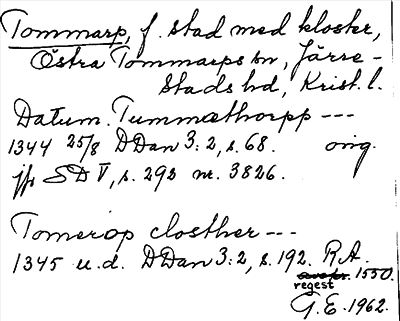 Tommarp, f. stad med kloster,
Östra Tommarps sn, Järre-
stads hd, Krist. l.
Datum. Tummæthorpp ---
1344 25/8 DDan 3:2, s. 68. orig.
jfr SD V, s. 292 nr. 3826.
Tomerop closther ---
1345 u.d. DDan 3:2, s. 192. R.A.
1550.
regest
G.E. 1962.